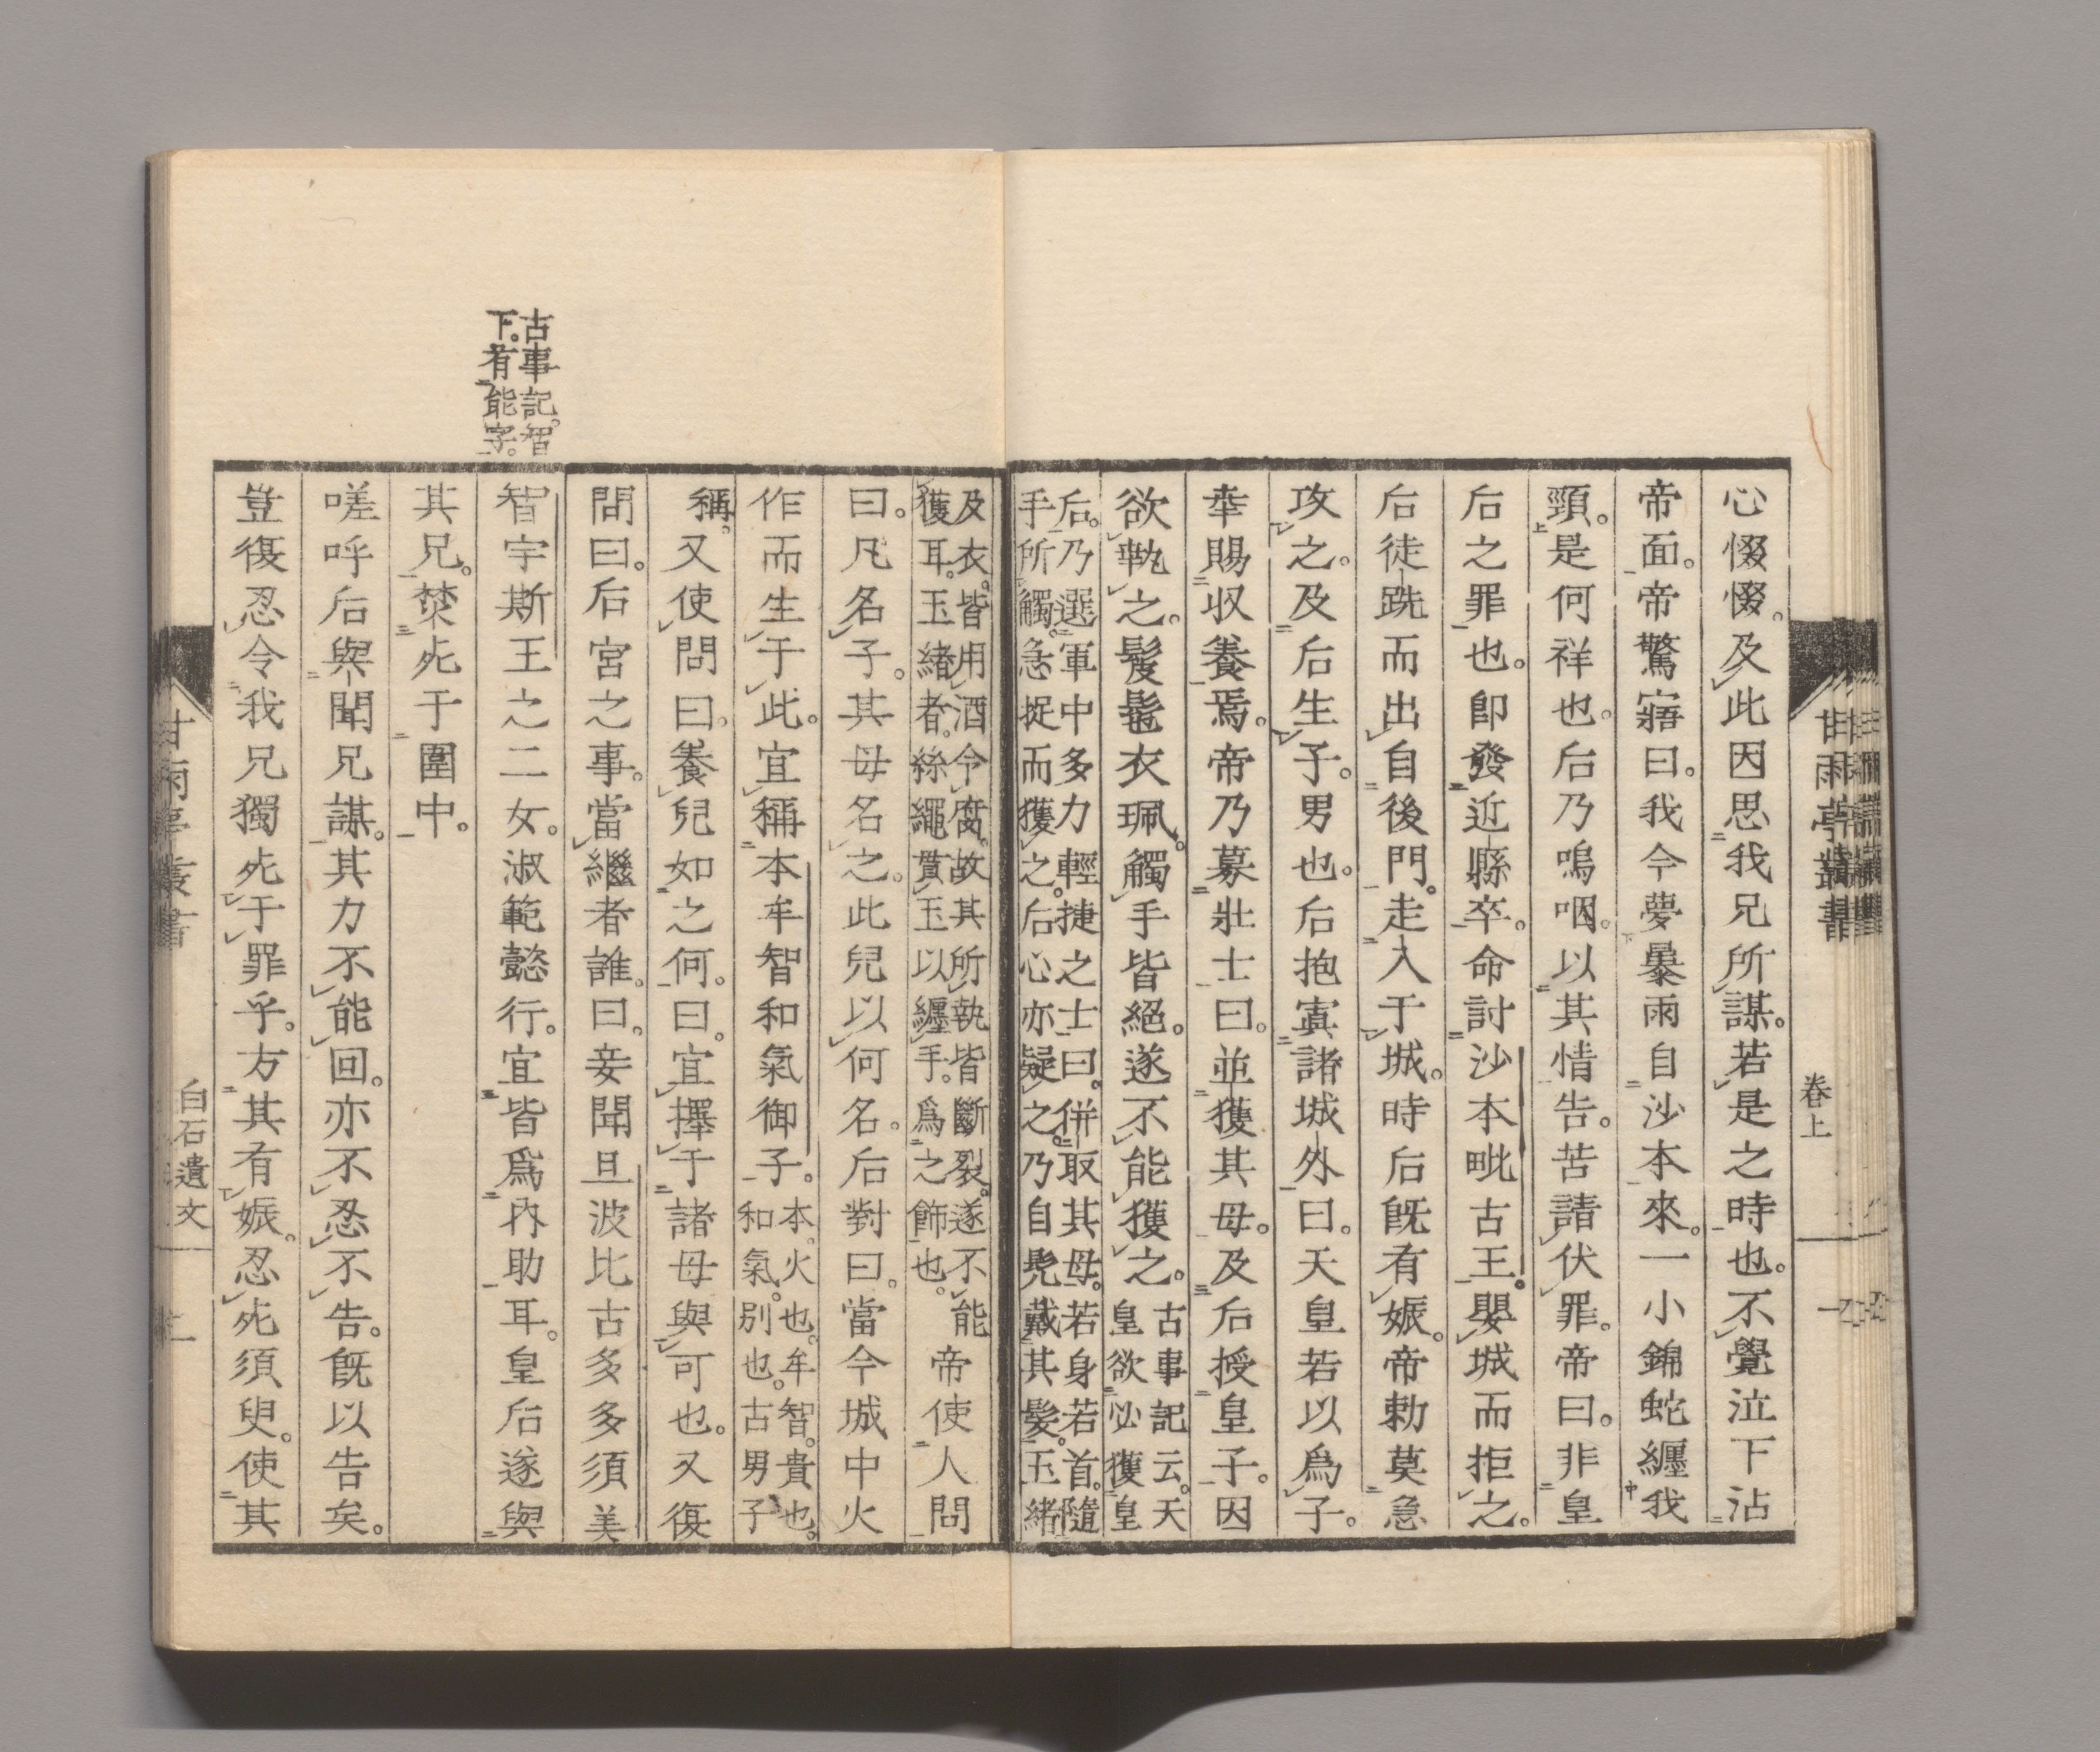 心惙惙。及此因思我兄所謀。若是之時也。不覺泣下沾
帝面。帝驚寤曰。我今夢暴雨自沙本來。一小錦蛇纏我
頸。是何祥也。后乃嗚咽。以其情告。苦請伏罪。帝曰。非皇
后之罪也。卽發近縣卒。命討沙本毗古王。嬰城而拒之。
后徒跣而出自後門。走入于城。時后旣有娠。帝勅莫急
攻之。及后生子。男也。后抱寘諸城外曰。天皇若以爲子。
幸賜収養焉。帝乃募壯士曰。並獲其母。及后授皇子。因
欲執之。髮髢衣珮。觸手皆絕。遂不能獲之。
古事記云。天
皇欲必獲皇
后。乃選軍中多力輕捷之士曰。併取其母。若身若首。隨
手所觸。急捉而獲之。后心亦疑之。乃自髡戴其髮。玉緒
及衣。皆用酒令腐。故其所執皆斷裂。遂不能
獲耳。玉緒者。絲繩貫玉以纏手。爲之飾也。
帝使人問
曰。凡名子。其母名之。此兒以何名。后對曰。當今城中火
作而生于此。宜稱本牟智和氣御子。
本。火也。牟智。貴也。
和氣。別也。古男子
稱。
又使問曰。養兒如之何。曰。宜擇于諸母與可也。又復
問曰。后宮之事。當繼者誰。曰。妾聞旦波比古多多須美
古事記。智
下。有能字。
智宇斯王之二女。淑範懿行。宜皆爲內助耳。皇后遂與
其兄。焚死于圍中。
嗟呼后與聞兄謀。其力不能回。亦不忍不告。旣以告矣。
豈復忍令我兄獨死于罪乎。方其有娠。忍死須臾。使其
甘雨亭叢書
卷上
甘雨亭叢書
白石遺文